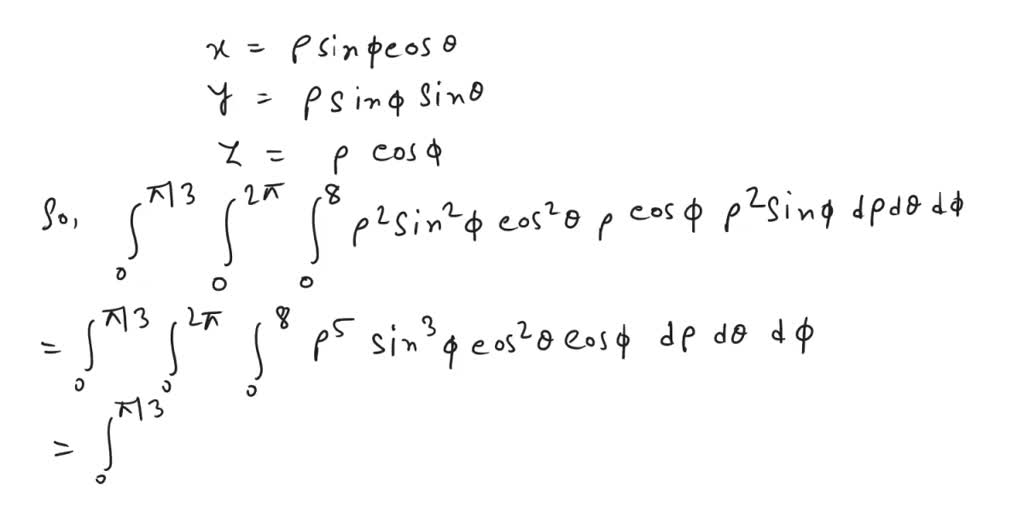 x = ρ sin ϕ cos θ
y = ρ sin ϕ sin θ
z = ρ cos ϕ
So, ∫₀^{π/3} ∫₀^{2π} ∫₀^{8} ρ² sin² ϕ cos² θ ρ cos ϕ ρ² sin ϕ dρ dθ dϕ
= ∫₀^{π/3} ∫₀^{2π} ∫₀^{8} ρ⁵ sin³ ϕ cos² θ cos ϕ dρ dθ dϕ
= ∫₀^{π/3}